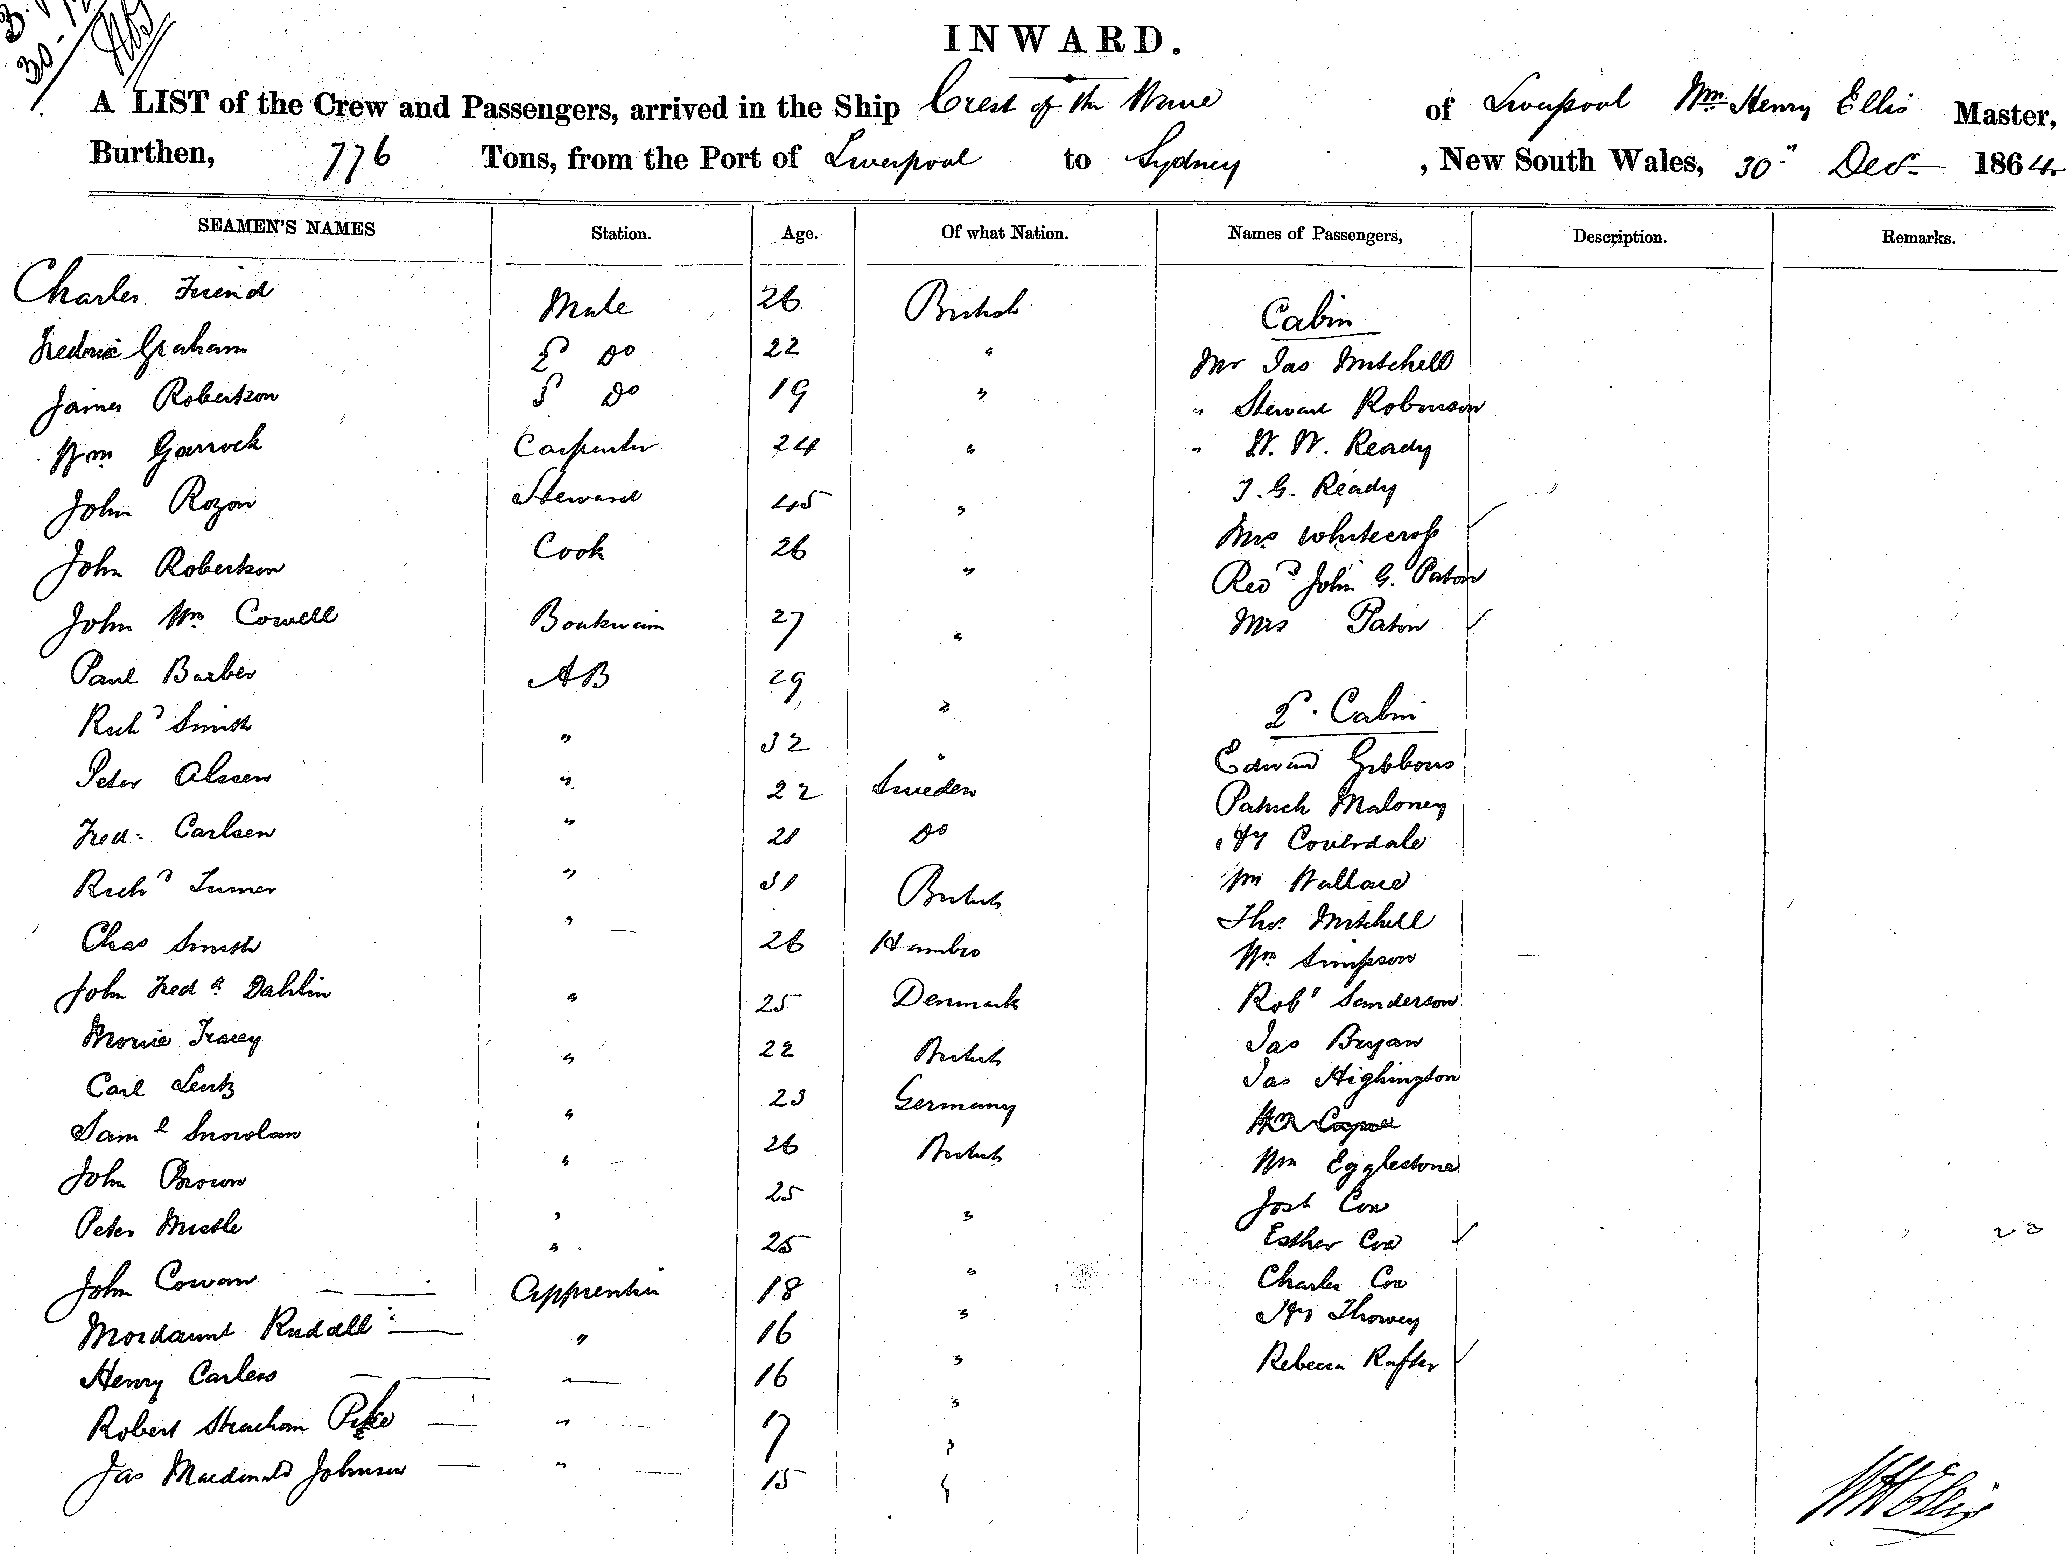 INWARD.
A LIST of the Crew and Passengers, arrived in the Ship Crest of the Wave of Liverpool Wm Henry Ellis Master,
Burthen, 776 Tons, from the Port of Liverpool to Sydney, New South Wales, 30" Decr 1864
SEAMEN'S NAMES Station. Age. Of what Nation. Names of Passengers, Description. Remarks.
Charles Friend Mate 26 British Cabin
Frederic Graham 2 Do 22 " Mr Jas Mitchell
James Robertson 3 Do 19 " " Stewart Robinson
Wm Garrock Carpenter 24 " " W. W. Ready
John Rozon Steward 45 " J. G. Ready
John Robertson Cook 26 " Mrs Whitecross
Revd John G. Paton
John Wm Cowell Boatswain 27 " Mrs Paton
Paul Barber AB 29 " 2d Cabin
Richd Smith " 32 " Edward Gibbons
Peter Olssen " 22 Sweden Patrick Maloney
Fred Carlsen " 21 Do Hy Coverdale
Richd Turner " 31 British Wm Wallace
Thos Mitchell
Chas Smith " 26 Hambro Wm Simpson
John Fredk Dahlin " 25 Denmark Robt Sanderson
Morris Tracey " 22 British Jas Bryan
Carl Lentz " 23 Germany Jas Highington
Saml Snowdon " 26 British
Wm Egglestone
John Brown " 25 " Josh Cox
Peter " 25 " Esther Cox
John Cowan Apprentice 18 " Charles Cox
Mordaunt Ruddell " 16 " Hy
Henry Carless " 16 " Rebecca Rafter
Robert Strachan Pike " 17 "
Jas Macdonald Johnson " 15 "
WH Ellis